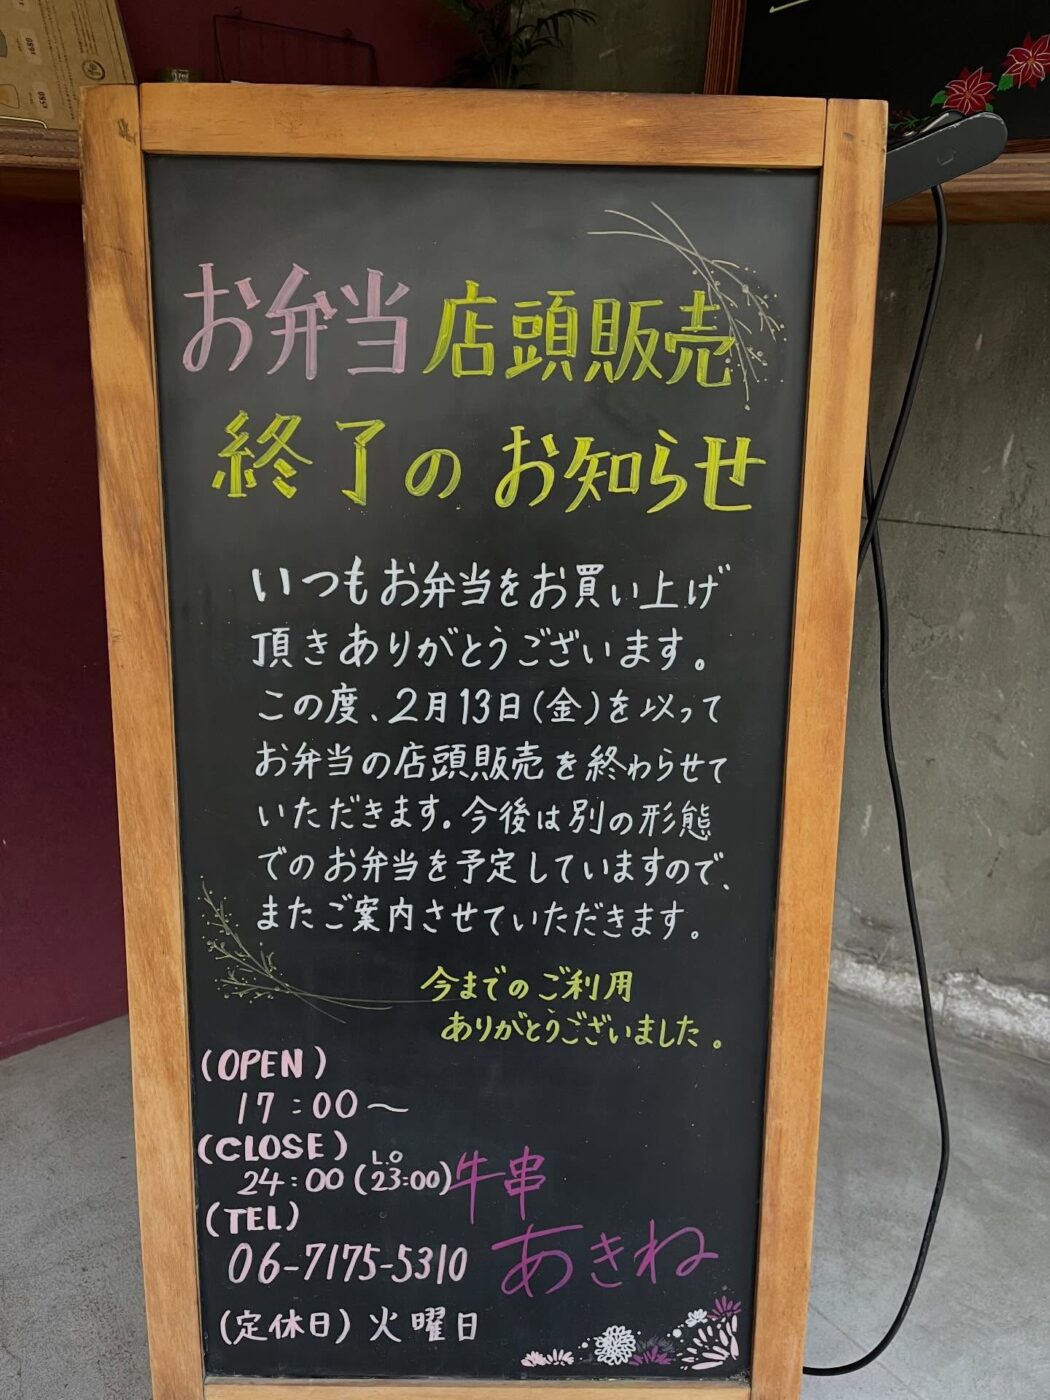 ¥680
¥580
お弁当店頭販売
終了のお知らせ
いつもお弁当をお買い上げ
頂きありがとうございます。
この度、2月13日(金)を以って
お弁当の店頭販売を終わらせて
いただきます。今後は別の形態
でのお弁当を予定していますので、
またご案内させていただきます。
今までのご利用
ありがとうございました。
(OPEN)
17:00～
(CLOSE)
24:00(L.O 23:00)
(TEL)
06-7175-5310
(定休日)火曜日
牛串
あきね